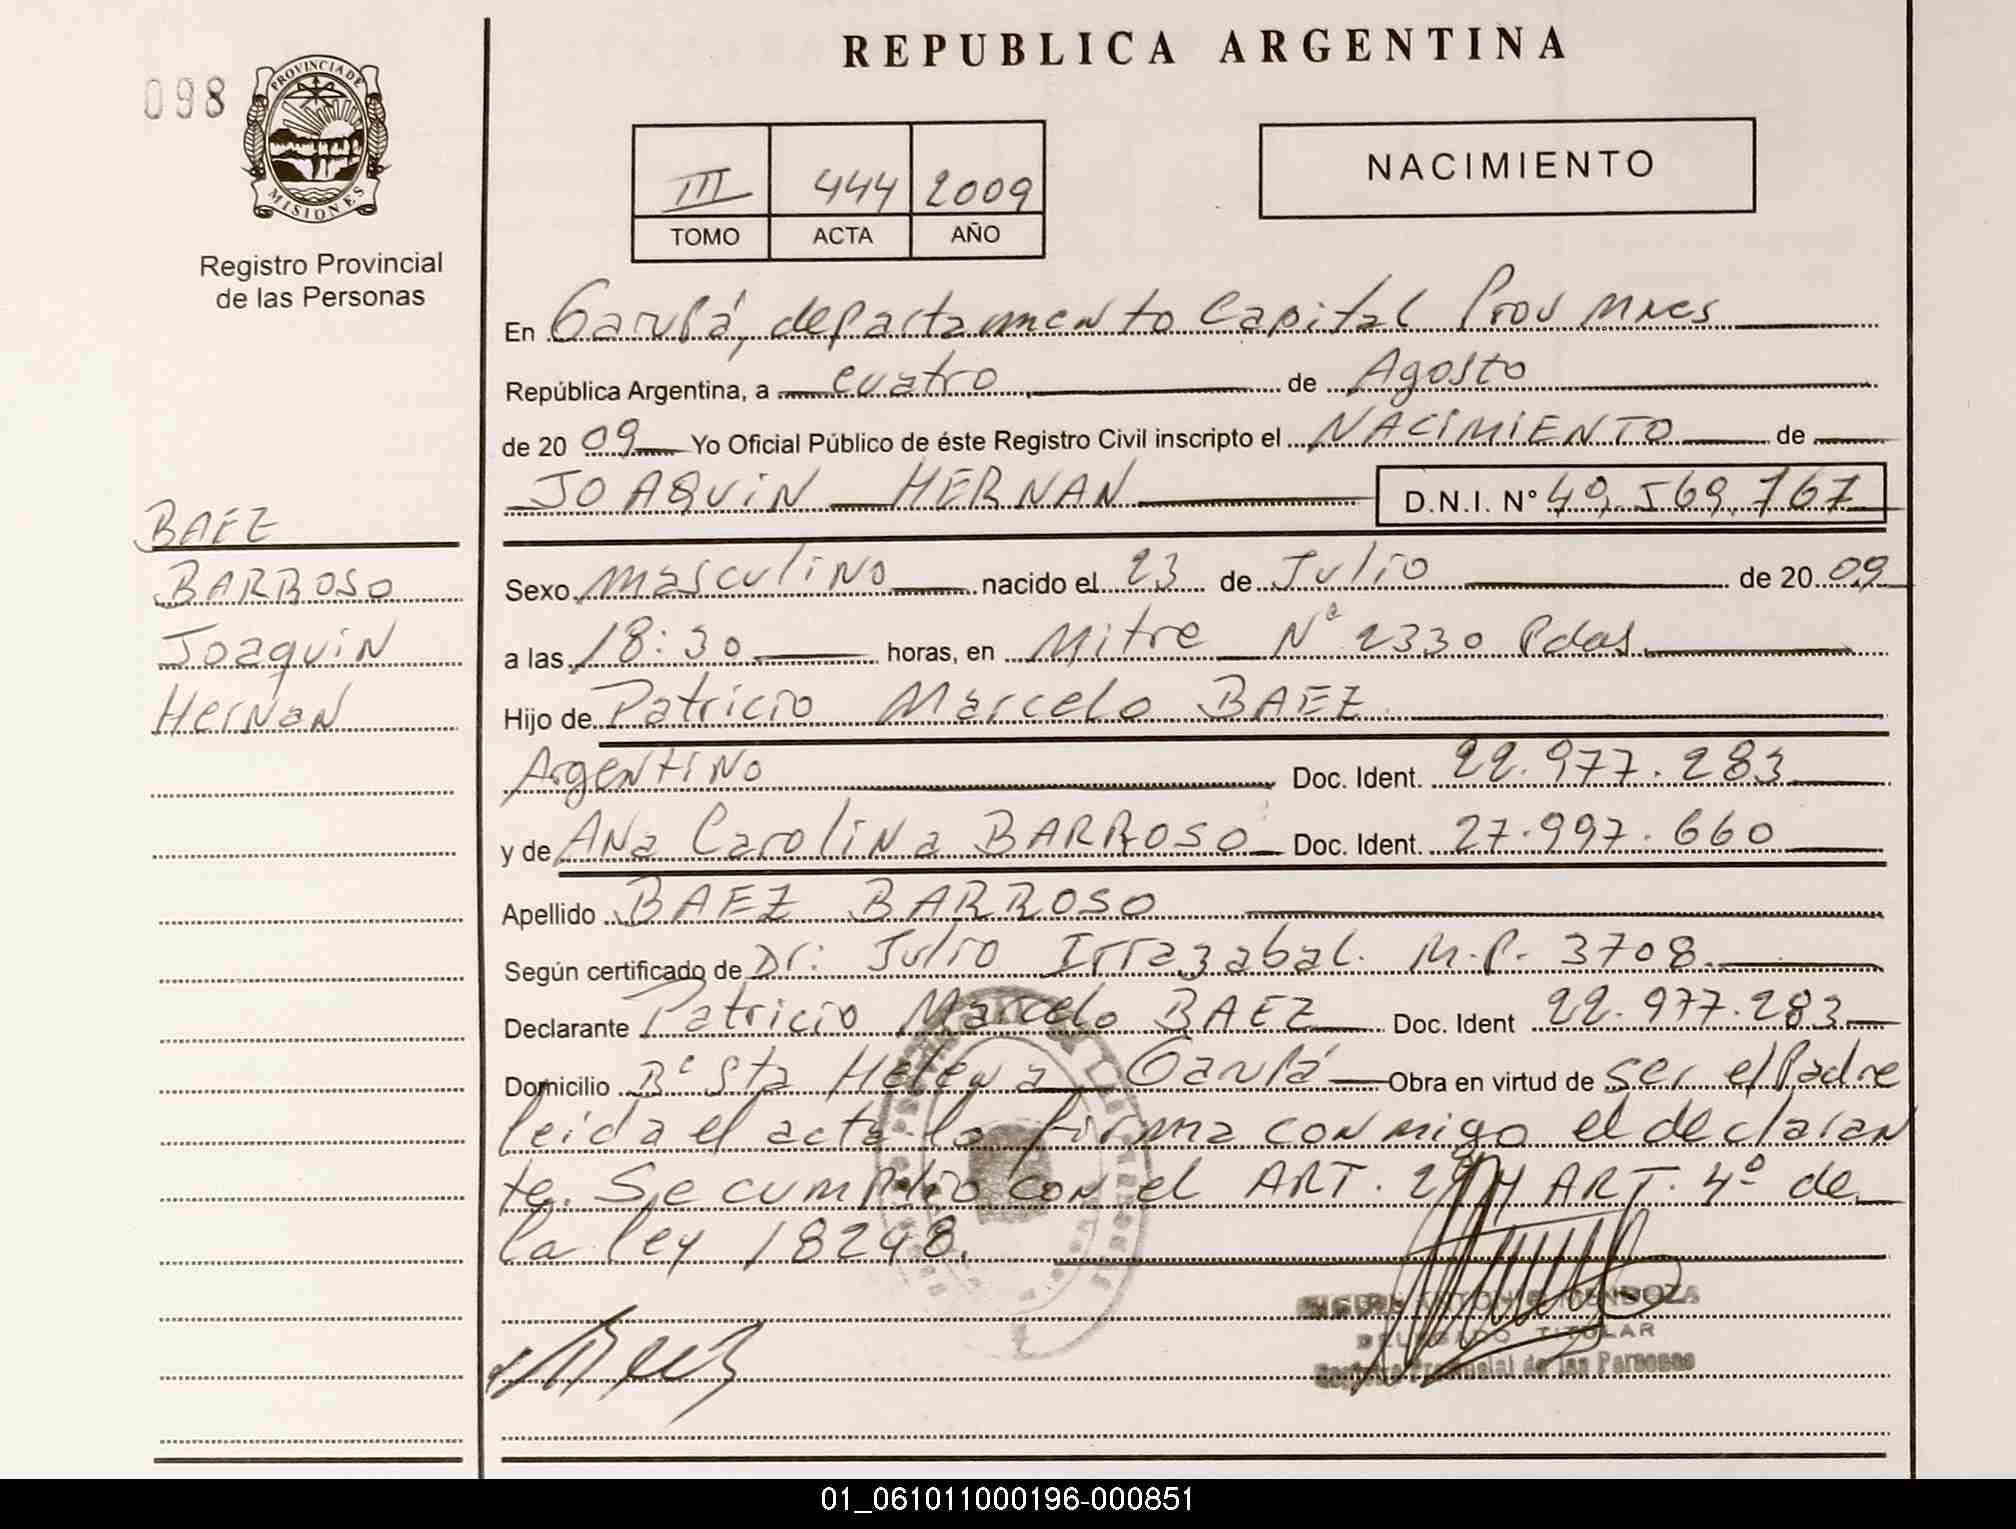 REPUBLICA ARGENTINA
098
PROVINCIA DE
MISIONES
Registro Provincial
de las Personas
III 444 2009
TOMO ACTA AÑO
NACIMIENTO
En Garupá, departamento Capital Prov Mnes
República Argentina, a cuatro de Agosto
de 2009 Yo Oficial Público de éste Registro Civil inscripto el NACIMIENTO de
JOAQUIN HERNAN D.N.I. Nº 49.569.767
BAEZ
BARROSO
Joaquin
Hernan
Sexo masculino nacido el 23 de Julio de 2009
a las 18:30 horas, en Mitre Nº 2330 Pdas
Hijo de Patricio Marcelo BAEZ
Argentino Doc. Ident. 22.977.283
y de Ana Carolina BARROSO Doc. Ident. 27.997.660
Apellido BAEZ BARROSO
Según certificado de Dr: Julio Irrazabal. M.P. 3708
Declarante Patricio Marcelo BAEZ Doc. Ident 22.977.283
Domicilio Bº Sta Helena Garupá Obra en virtud de ser el Padre
leida el acta lo firma conmigo el declaran
te. Se cumplio con el ART. ART. 4º de
la ley 18248.
Baez
ANTONIO MENDOZA
DELEGADO TITULAR
Registro Provincial de las Personas
01_061011000196-000851